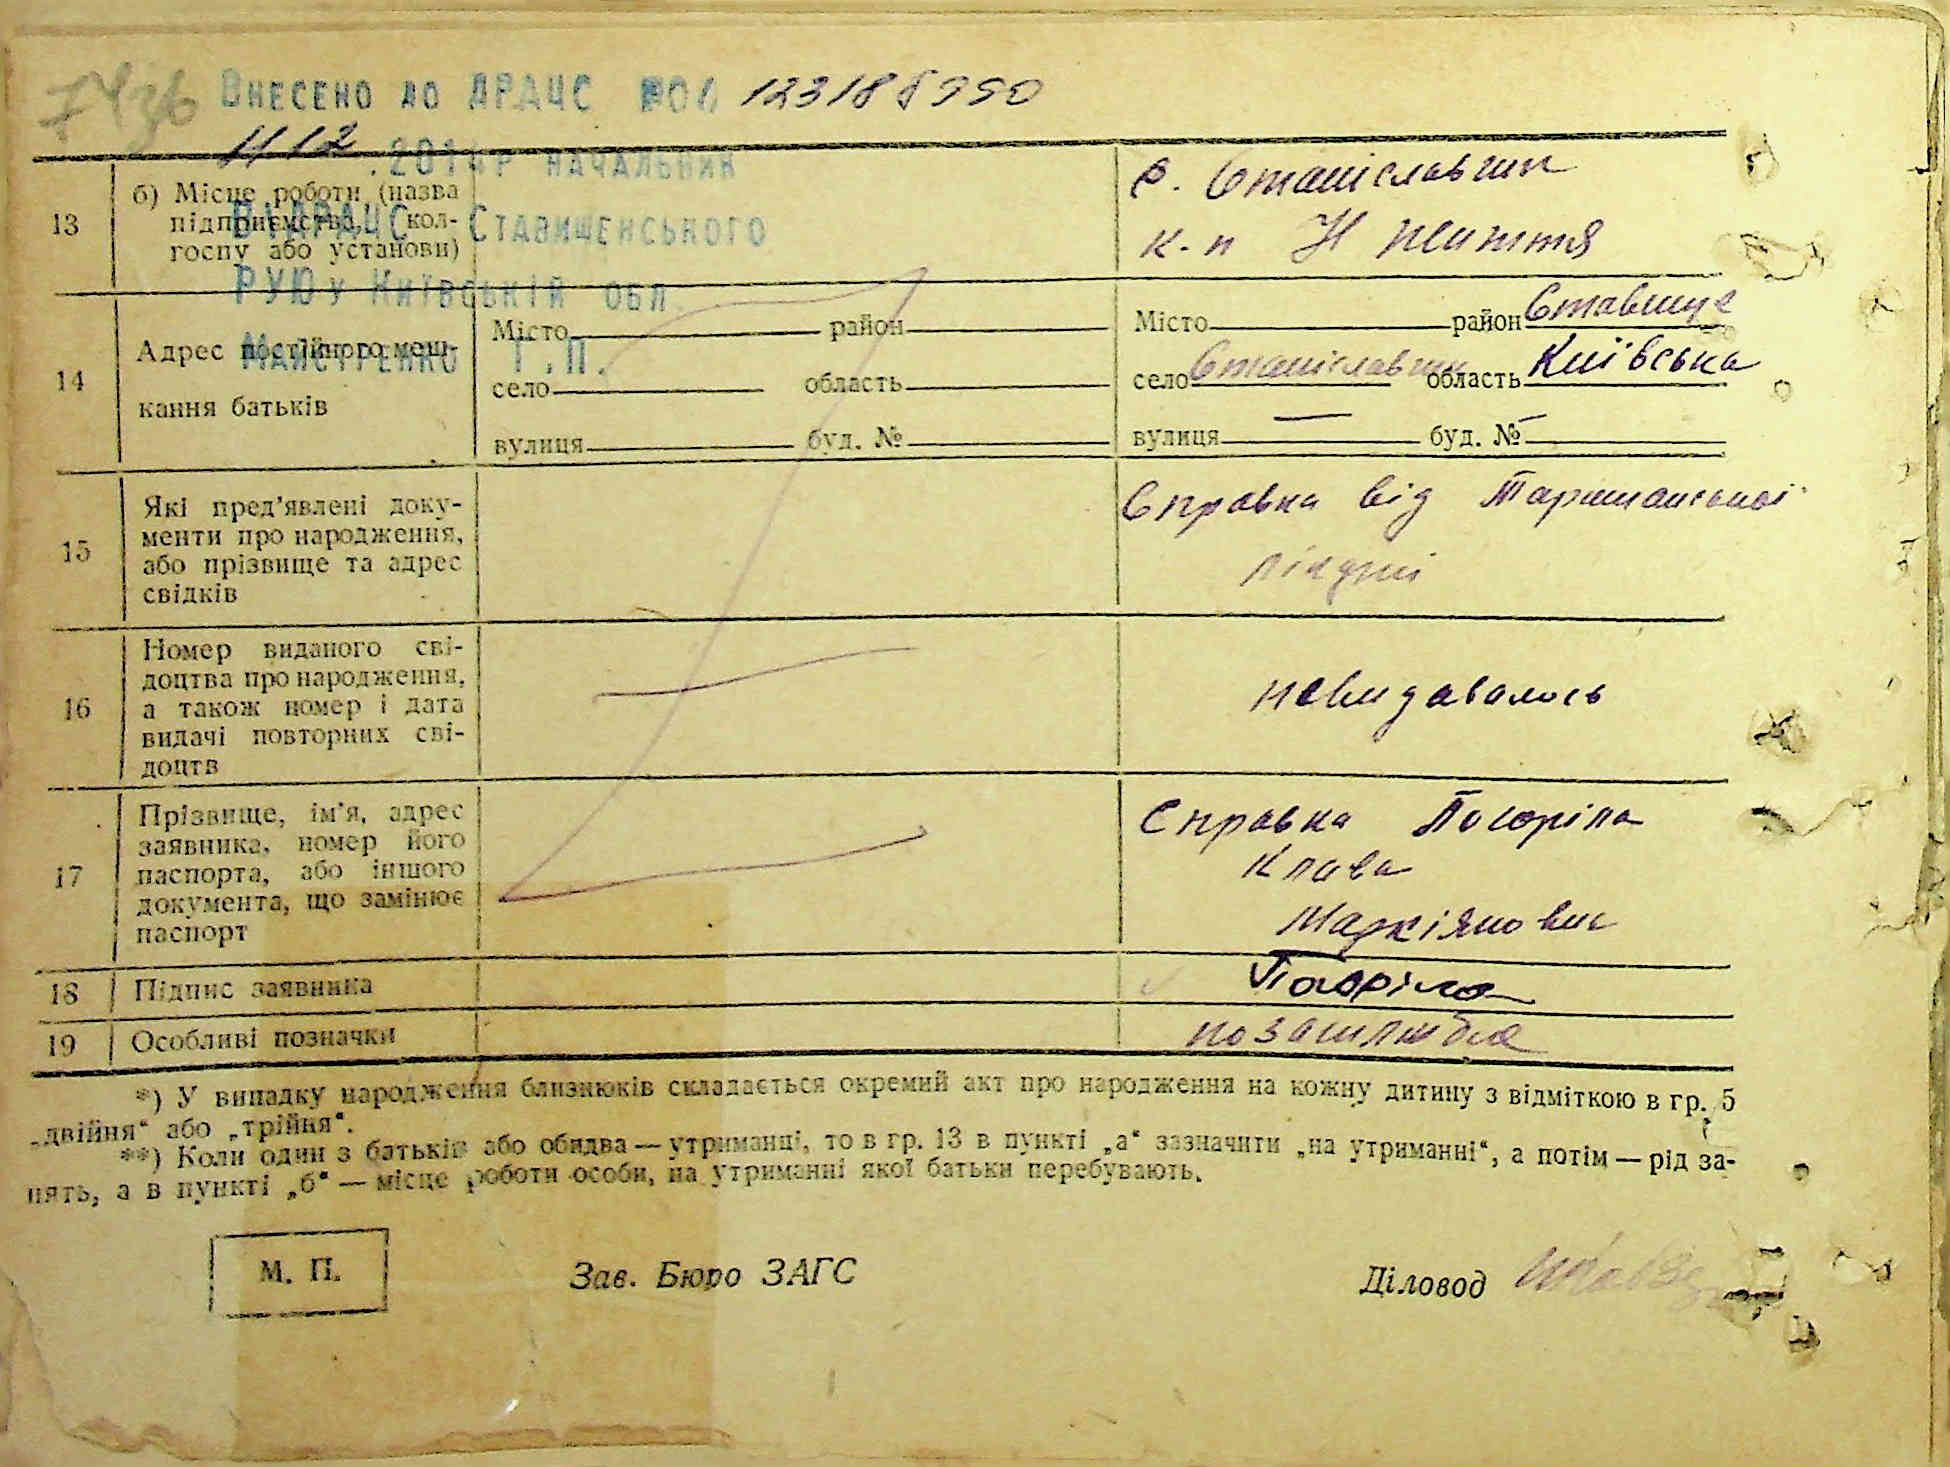 74зв Внесено до ДРАЦС
11 12 .2014р начальник
ВДРАЦС Ставищенського
РУЮ у Київській обл
Майстренко Г.П.
13 б) Місце роботи (назва підприємства, кол-
госпу або установи)
с. Станіславчик
к-п Н життя
14 Адрес постійного меш-
кання батьків
Місто район
село область
вулиця буд. №
Місто район Ставище
село Станіславчик область Київська
вулиця — буд. № —
15 Які пред'явлені доку-
менти про народження,
або прізвище та адрес
свідків
Справка від
лікарні
16 Номер виданого сві-
доцтва про народження,
а також номер і дата
видачі повторних сві-
доцтв
невидавалось
17 Прізвище, ім'я, адрес
заявника, номер його
паспорта, або іншого
документа, що замінює
паспорт
Справка Погоріла
Клава
Маркіяновна
18 Підпис заявника
Погоріла
19 Особливі позначки
позашлюбна
*) У випадку народження близнюків складається окремий акт про народження на кожну дитину з відміткою в гр. 5
„двійня“ або „трійня“.
**) Коли один з батьків або обидва — утриманці, то в гр. 13 в пункті „а“ зазначити „на утриманні“, а потім — рід за-
нять, а в пункті „б“ — місце роботи особи, на утриманні якої батьки перебувають.
М. П.
Зав. Бюро ЗАГС
Діловод